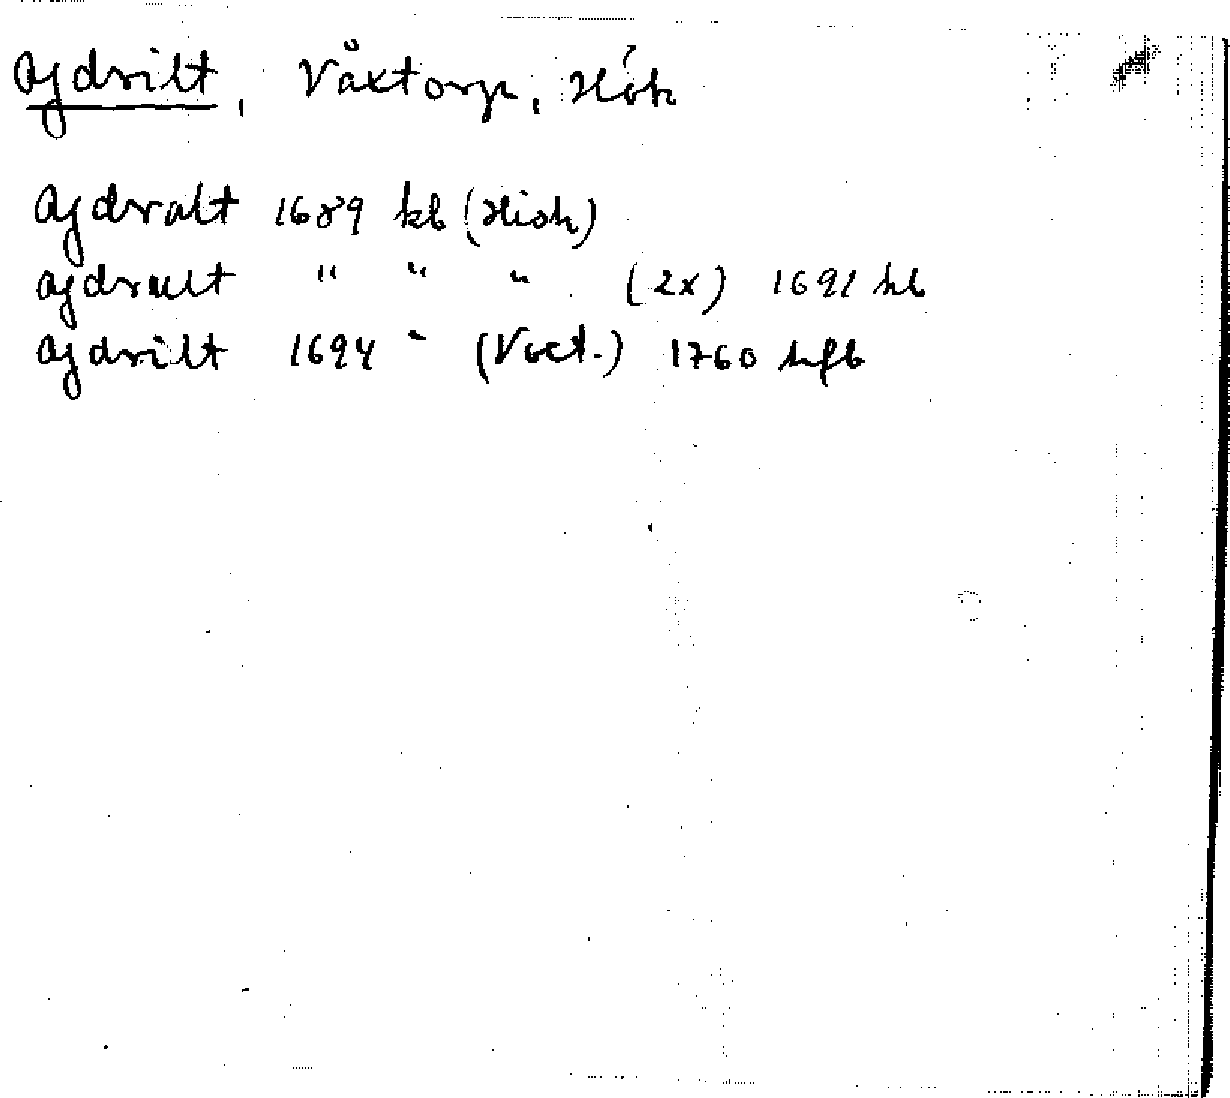 Ajdrilt, Växtorp, Hök
Ajdralt 1689 kb (Hish)
Ajdrult " " " (2x) 1691 kb
Ajdrilt 1694 " (Vect.) 1760 hfb